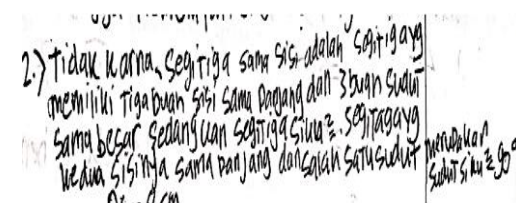 2.) Tidak Karna, Segitiga sama sisi adalah segitiga yg
memiliki tiga buah sisi sama panjang dan 3 buah sudut
sama besar sedangkan segitiga siku². segitaga yg
kedua sisinya sama panjang dan salah satu sudut
merupakan
sudut siku² 90°